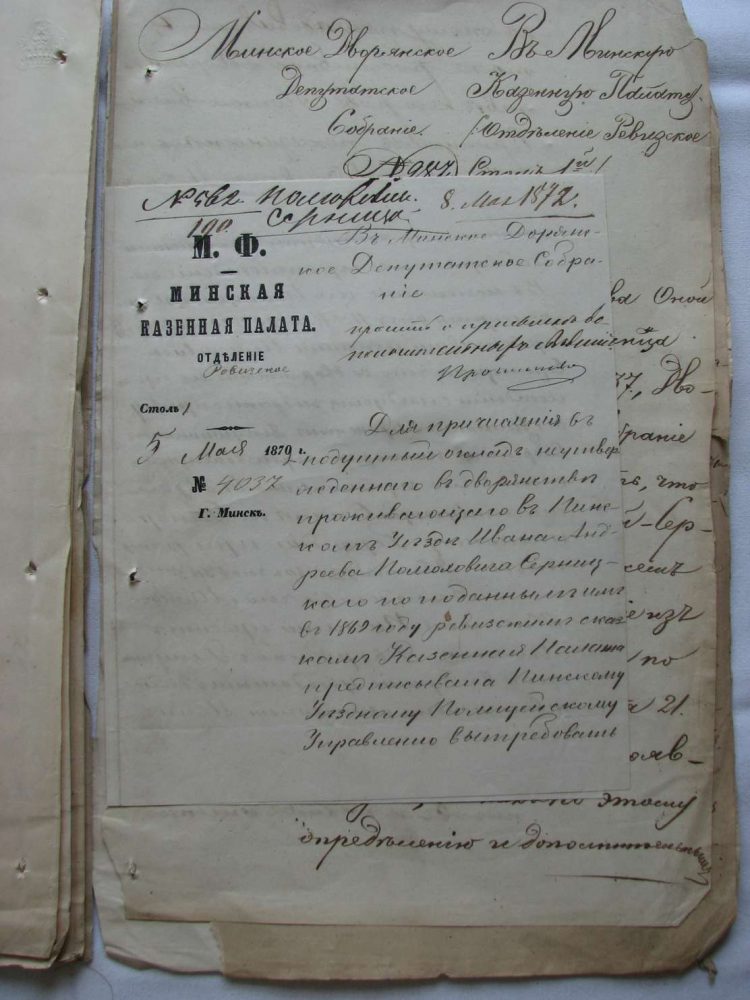 Минское Дворянское
Депутатское
Собраніе.
Въ Минскую
Казенную Палату.
(Отдѣленіе Ревизское
Столъ 1й)
№ 987
№ 562.
8 Мая 1872.
190.
М. Ф.
МИНСКАЯ
КАЗЕННАЯ ПАЛАТА.
ОТДѢЛЕНІЕ
Ревизское
Столъ 1
5 Мая 1872 г.
№ 4037
Г. Минскъ.
Въ Минское Дворянс-
кое Депутатское Собра-
ніе
Для причисленія въ
подушный окладъ неутвер
жденнаго въ дворянствѣ
проживающаго въ Пинс-
комъ Уѣздѣ Ивана Анд-
реева Помоловича Серниц-
каго по поданнымъ имъ
въ 1869 году ревизскимъ сказ
камъ Казенная Палата
предписывала Пинскому
Уѣздному Полицейскому
Управленію вытребовать
ва Оной
37, Дво-
браніе
ть, что
й-Сер-
семъ
іе изъ
по
а 21.
ояв-
по этому
опредѣленію и дополнительный